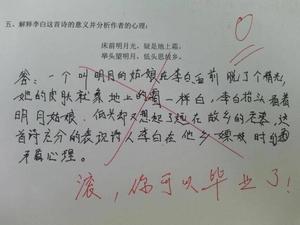 五、解释李白这首诗的意义并分析作者的心理：
床前明月光，疑是地上霜。
举头望明月，低头思故乡。
答：一个叫明月的姑娘在李白面前脱了个精光，
她的皮肤就象地上的霜一样白，李白抬头看着
明月姑娘，低头却又想起了远在故乡的老婆，这
首诗充分的表现诗人李白在他乡嫖妓时的
矛盾心理。
滚，你可以毕业了！
0